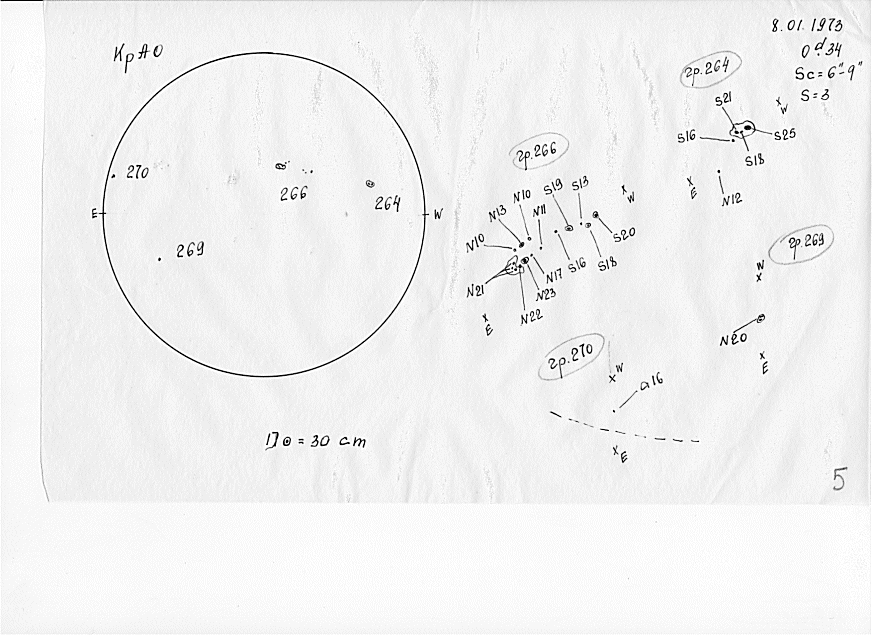 8.01.1973
0ᵈ.34
Sc=6"-9"
S=3
КрАО
270
266
264
E
W
269
D⊙=30 cm
гр.264
S21
W
S16
S25
S18
E
N12
гр.266
N10
S19
S13
W
N13
N11
N10
S20
N17
S16
S18
N21
N23
N22
E
гр.269
W
N20
E
гр.270
W
a16
E
5